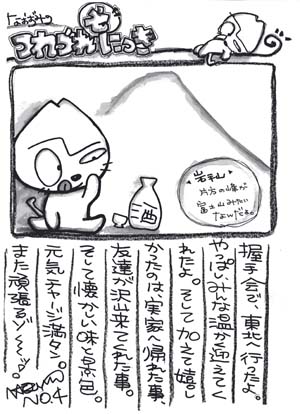 なおぢの
つれづれにっき
岩手山
片方の峰が
富士山みたい
なんだね。
酒
握手会で、東北へ行ったよ。
やっぱいみんな温か迎えてく
れたよ。そして加えて嬉し
かったのは、実家へ帰れた事、
友達が沢山来てくれた事。
そして懐かしい味と景色。
元気チャージ満タン。
また頑張るゾ〜〜ッ。
NO.4